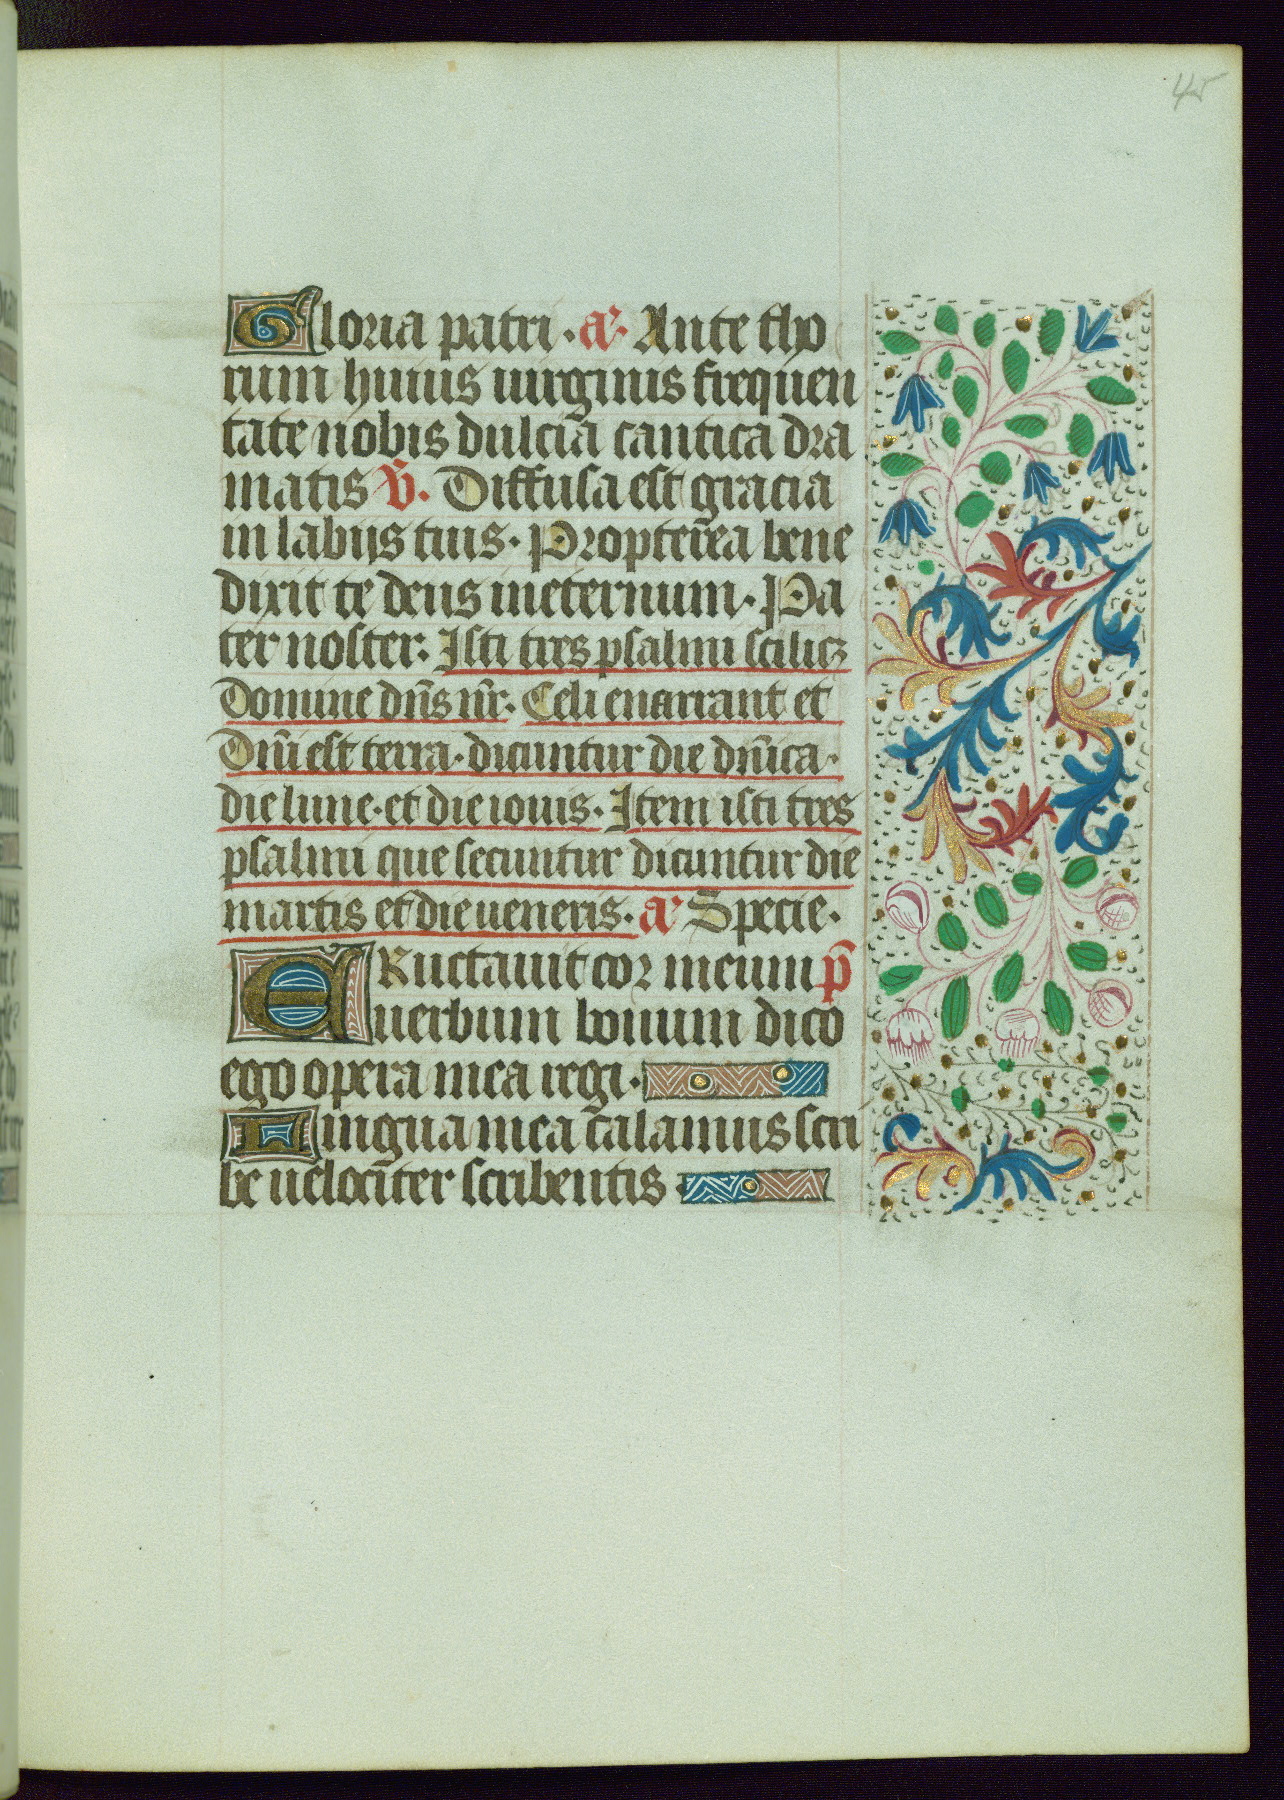 45
Gloria patri · aͬ· Ante tho
rum huius uirginis frequen
tate nobis dulcia cantica dra
matis v̄. Diffusa est gracia
in labijs tuis · Propterea bene
dixit te deus ineternum · Pa
ter noster: Isti tres psalmi scilicꝫ
Domine dn̄s nr̄ · Celi enarrant et
Dn̄i est terra · dicuntur die dn̄ica ·
die lune · et die iouis · Item isti tres
psalmi que secuntur dicuntur die
martis et die ueneris · aͬ Specie ·
ERuctauit cor meum p̄
uerbum bonum dico
ego opera mea regi ·
Lingua mea calamus scri
be uelociter scribentis